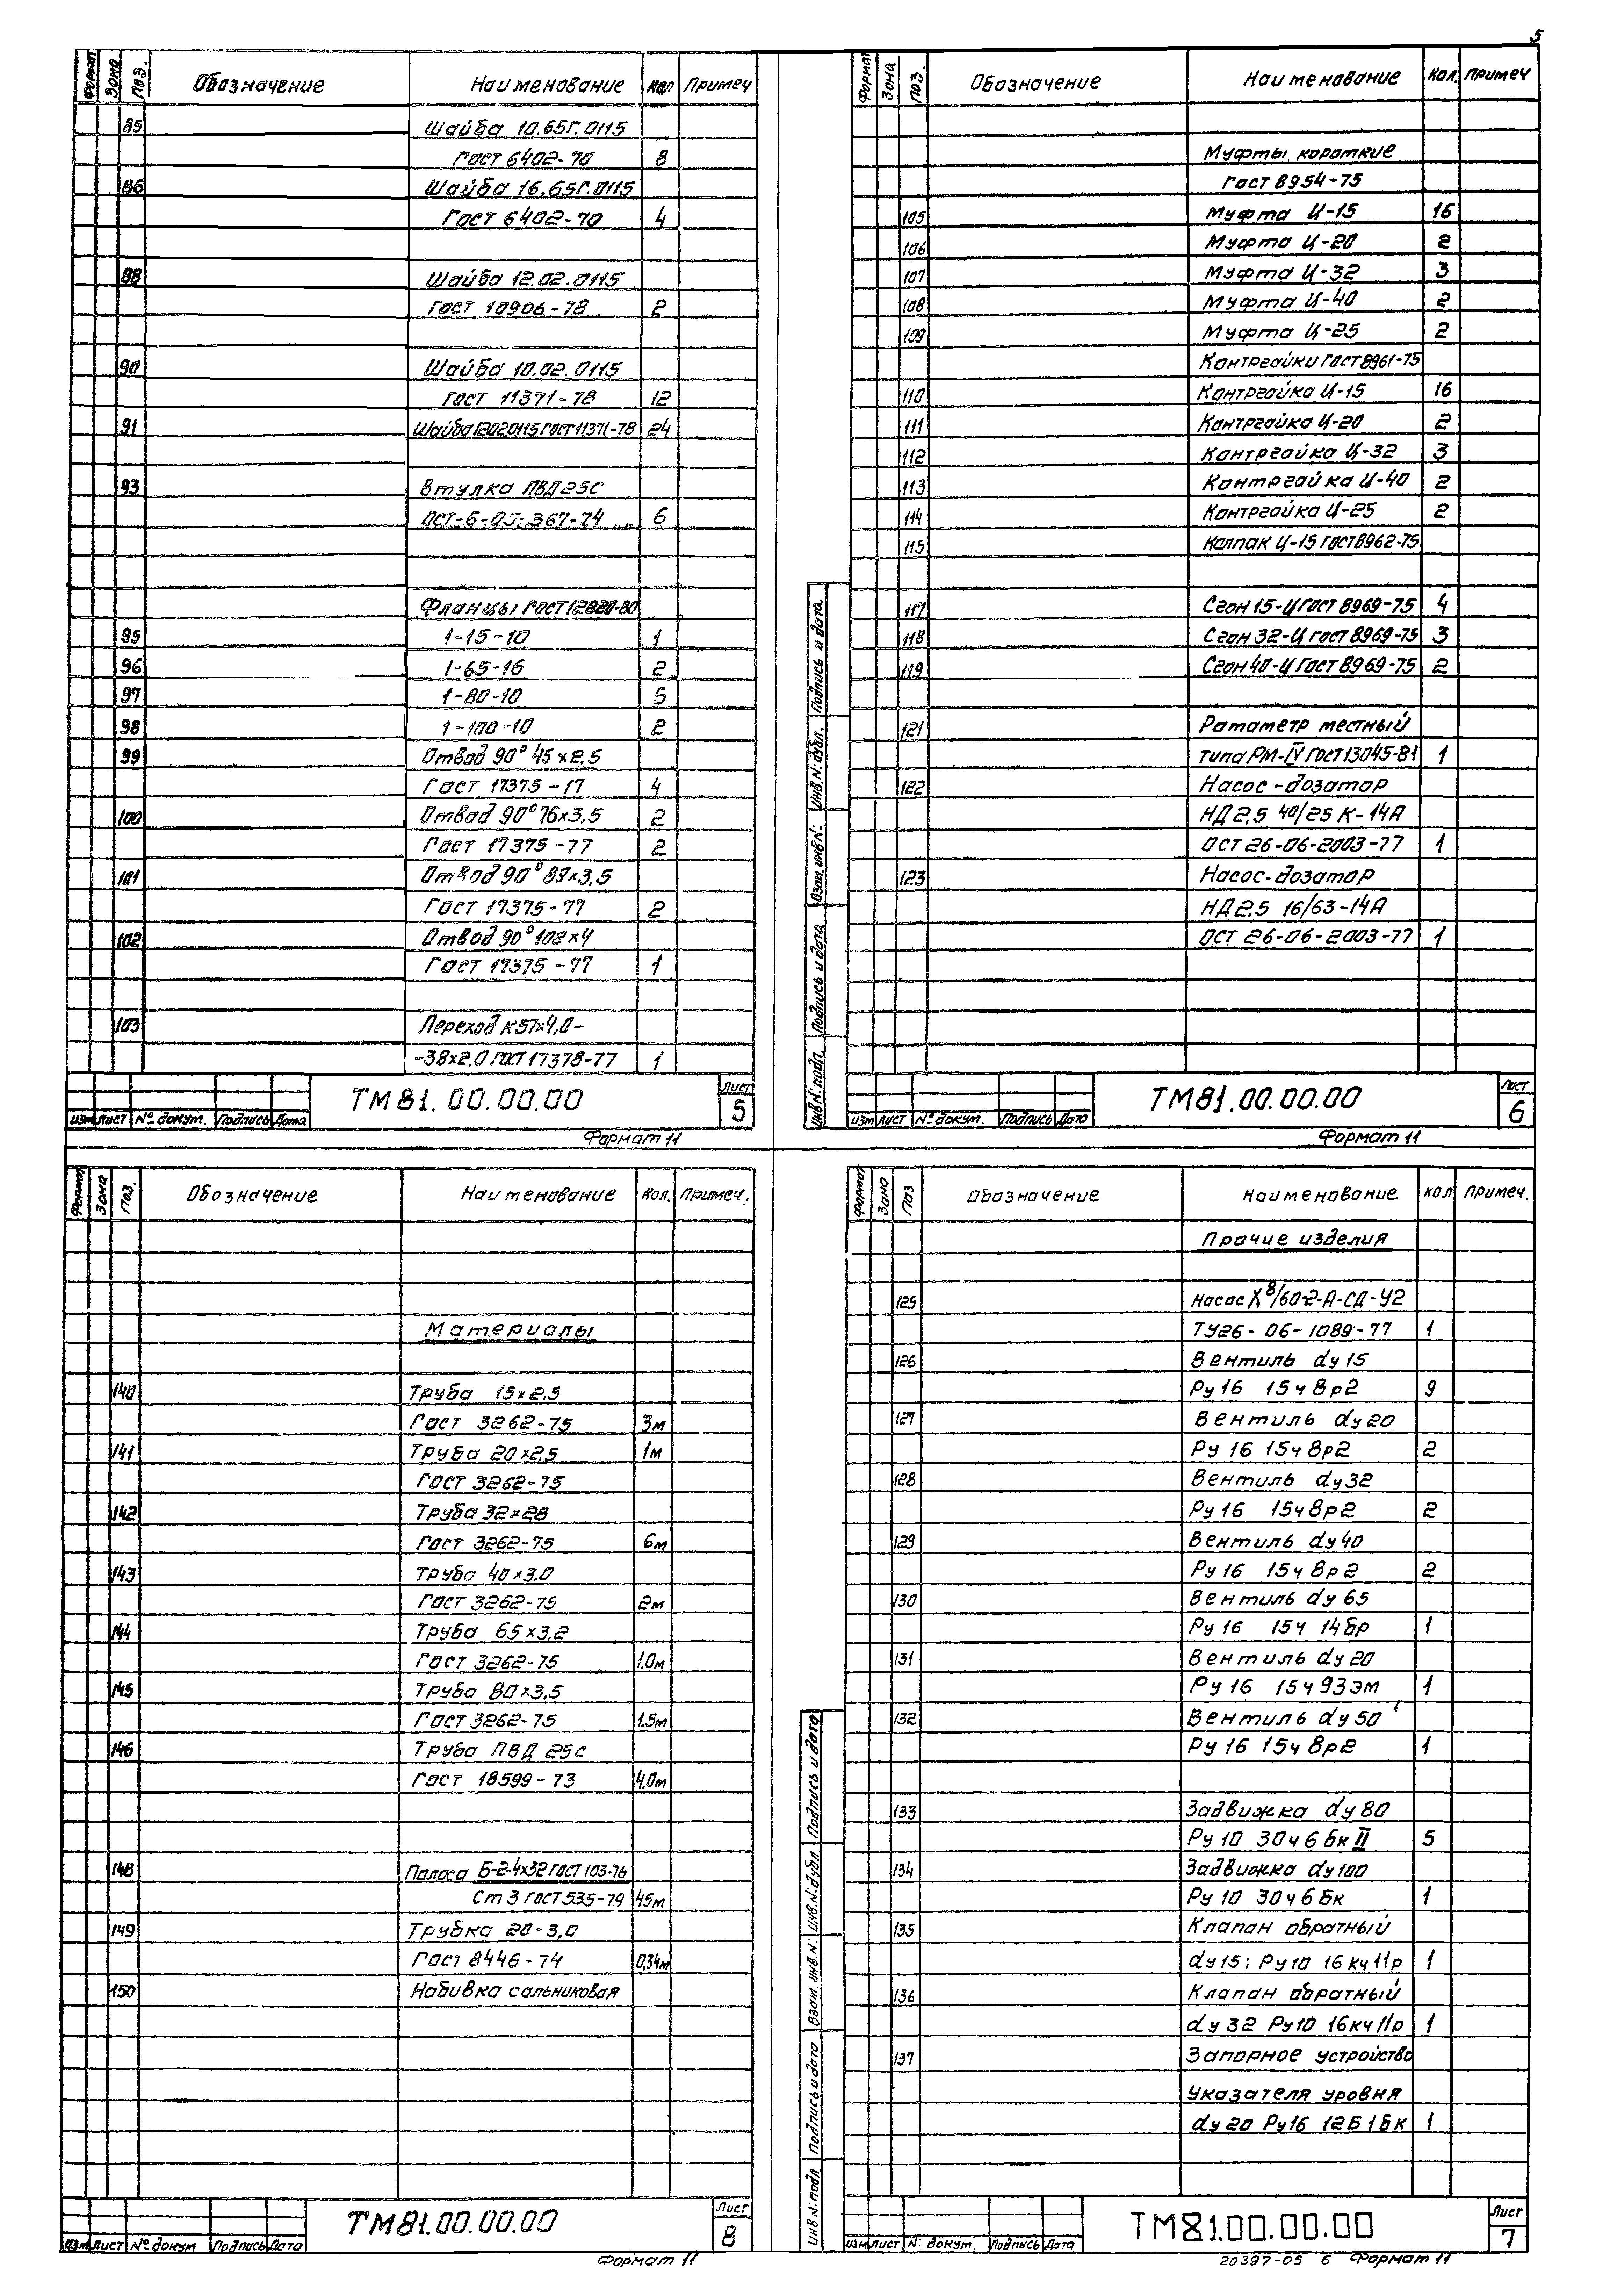 5
Формат Зона Поз. Обозначение Наименование Кол Примеч
85 Шайба 10.65Г.0115
Гост 6402-70 8
86 Шайба 16.65Г.0115
Гост 6402-70 4
88 Шайба 12.02.0115
Гост 10906-78 2
90 Шайба 10.02.0115
Гост 11371-78 12
91 Шайба 12020115 ГОСТ 11371-78 24
93 Втулка ПВД25С
ОСТ-6-05-367-74 6
Фланцы ГОСТ 12820-80
95 1-15-10 1
96 1-65-16 2
97 1-80-10 5
98 1-100-10 2
99 Отвод 90° 45х2.5
Гост 17375-17 4
100 Отвод 90° 76х3,5 2
Гост 17375-77 2
101 Отвод 90° 89х3,5
Гост 17375-77 2
102 Отвод 90° 108х4
Гост 17375-77 1
103 Переход К57х4,0-
-38х2.0 ГОСТ 17378-77 1
Изм Лист № докум. Подпись Дата ТМ81.00.00.00 Лист 5
Формат 11
Формат Зона Поз. Обозначение Наименование Кол. Примеч
Муфты короткие
Гост 8954-75
105 Муфта Ц-15 16
106 Муфта Ц-20 2
107 Муфта Ц-32 3
108 Муфта Ц-40 2
109 Муфта Ц-25 2
Контргайки ГОСТ 8961-75
110 Контргайка Ц-15 16
111 Контргайка Ц-20 2
112 Контргайка Ц-32 3
113 Контргайка Ц-40 2
114 Контргайка Ц-25 2
115 Колпак Ц-15 ГОСТ 8962-75
117 Сгон 15-Ц ГОСТ 8969-75 4
118 Сгон 32-Ц ГОСТ 8969-75 3
119 Сгон 40-Ц ГОСТ 8969-75 2
121 Ротаметр местный
типа РМ-IV ГОСТ 13045-81 1
122 Насос-дозатор
НД 2,5 40/25 К-14А
ОСТ 26-06-2003-77 1
123 Насос-дозатор
НД 2.5 16/63-14А
ОСТ 26-06-2003-77 1
Инв N: подл. Подпись и дата Взам. инв N: Инв. N: дубл. Подпись и дата
Изм Лист № докум. Подпись Дата ТМ81.00.00.00 Лист 6
Формат 11
Формат Зона Поз. Обозначение Наименование Кол. Примеч.
Материалы
140 Труба 15х2.5
Гост 3262-75 3м
141 Труба 20х2.5 1м
Гост 3262-75
142 Труба 32х28
Гост 3262-75 6м
143 Труба 40х3.0
Гост 3262-75 2м
144 Труба 65х3,2
Гост 3262-75 1.0м
145 Труба 80х3.5
Гост 3262-75 1.5м
146 Труба ПВД 25С
Гост 18599-73 4,0м
148 Полоса Б-2-4х32 ГОСТ 103-76
Ст 3 ГОСТ 535-79 45м
149 Трубка 20-3,0
Гост 8446-74 0,34м
150 Набивка сальниковая
Изм Лист № докум Подпись Дата ТМ81.00.00.00 Лист 8
Формат 11
Формат Зона Поз Обозначение Наименование Кол Примеч.
Прочие изделия
125 Насос Х8/60-2-А-СД-У2
ТУ26-06-1089-77 1
126 Вентиль dу15
Ру16 15ч 8р2 9
127 Вентиль dу20
Ру 16 15ч 8р2 2
128 Вентиль dу32
Ру 16 15ч 8р2 2
129 Вентиль dу40
Ру 16 15ч 8р2 2
130 Вентиль dу 65
Ру 16 15ч 14бр 1
131 Вентиль dу 20
Ру 16 15ч 93эм 1
132 Вентиль dу 50
Ру 16 15ч 8р2 1
133 Задвижка dу 80
Ру 10 30ч 6 бк II 5
134 Задвижка dу100
Ру 10 30ч 6 бк 1
135 Клапан обратный
dу15; Ру10 16кч11р 1
136 Клапан обратный
dу 32 Ру10 16кч11р 1
137 Запорное устройство
Указателя уровня
dу20 Ру16 12Б1бк 1
Инв N: подл Подпись и дата Взам. инв. N: Инв. N: дубл Подпись и дата
Изм Лист N: докум. Подпись Дата ТМ81.00.00.00 Лист 7
20397-05 6 Формат 11